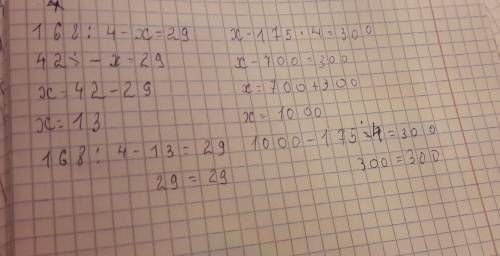 168 : 4 - x = 29
42 : - x = 29
x = 42 - 29
x = 13
168 : 4 - 13 = 29
29 = 29
x - 175 · 4 = 300
x - 700 = 300
x = 700 + 300
x = 1000
1000 - 175 · 4 = 300
300 = 300